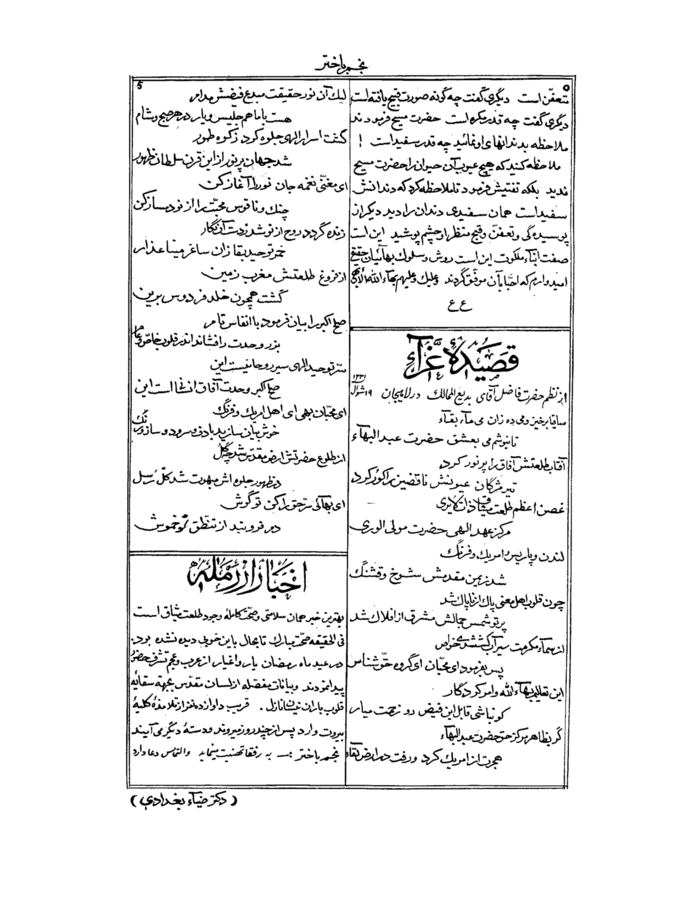 نجم باختر
۵
5
متعفّن است دیگری گفت چه گونه صورت قبیح یافته است
دیگری گفت چه قدر مکره است حضرت مسیح فرمودند
ملاحظه بدندانهای او نمائید چه قدر سفید است !
ملاحظه کنید که هیچ عیوب آن حیوان را حضرت مسیح
ندید بلکه تفتیش فرمود تا ملاحظه کرد که دندانش
سفید است همان سفیدی دندان را دید دیگر از
پوسیده گی و تعفن و قبح منظر او چشم پوشید این است
صفت ابناء ملکوت این است روش و سلوک بهائیان حقیقی
امیدوارم که احبّا بآن موفّق گردند و علیک و علیهم بهاء الله الأبهی
ع ع
قصیدهٔ غرّاء
از نظم حضرت فاضل آقای بدیع الممالک در لاهیجان ۱۹ شوال ۱۳۳۱
ساقیا برخیز و می ده زان می ماء بقاء
تا بنوشم می بعشق حضرت عبد البهاء
آفتاب طلعتش آفاق را پر نور کرد
تیر مژگان عیونش ناقضین را کور کرد
غصن اعظم طلعت میثاق ذات کبری
مرکز عهد الهی حضرت مولی الوری
لندن و پاریس و امریک و فرنگ
شد زیمن مقدمش شوخ و قشنگ
چون قلوب اهل معنی پاک از ناپاک شد
پرتو شمس جمالش مشرق از افلاک شد
از سماء مکرمت سیر آن کشتی خرامی
پس بفرمود ای محبّان ای گروه خوش شناس
این تعالیم بهاء الله و امر کردگار
کو نباشی قابل این فیض دو زحمت میار
گر بظاهر مرکز حق حضرت عبد البهاء
هجرت از امریک کرد و رفت در ارض بقاء
لیک آن نور حقیقت مبدع فیضش مدام
هست با ما هم جلیس و یار در هر صبح و شام
گشت اسرار الهی جلوه گر ز کوه طور
شد جهان پر نور از این قرن سلطان ظهور
ای مغنّی نغمه جان نور را آغاز کن
چنگ و ناقوس محبّت را از نو دمساز کن
زنده گردد روح از نو شد ز دست آن نگار
خمر توحید بقا زان ساغر مینا عذار
از فروغ طلعتش مغرب زمین
گشت همچون خلد فردوس برین
صلح اکبر را بیان فرمود با انفاس تام
بزر وحدت را فشاند اندر قلوب خاص و عام
ستر توحید الهی سیر روحانیست این
صلح اکبر وحدت آفاق انسانی است این
ای محبّان بهی ای اهل امریک و فرنگ
خوش بیان سازید با دف و سرود و ساز و زنگ
از طلوع حضرتش ارض مقدّس شد چو گل
در ظهور جلوه اش مبهوت شد کلّ رسل
ای بهائی سرّ حق را کن تو گوش
در فرو بند از تنطّق گو خموش
اخبار از رمله
بهترین خبر همان سلامتی و صحّت کامله وجود طلعت میثاق است
فی الحقیقه صحّت مبارک تا بحال باین خوبی دیده نشده بود.
در عید ماه رمضان یار و اغیار از عرب و عجم تشرّف حضور
پیدا نمودند و بیانات مفصّله از لسان مقدّس بجهة سقایهٔ
قلوب یاران نیسان نازل. قریب دوازده نفر از تلامذهٔ کلیهٔ
بیروت وارد پس از چند روز میروند و دستهٔ دیگر می آیند
نجم باختر :— به رفقا تهنیت مینماید والتماس دعا دارد
(دکتر ضیاء بغدادی)